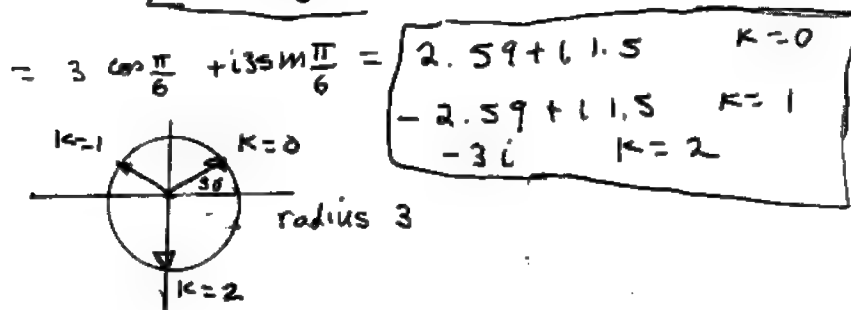 = 3 cos π/6 + i3 sin π/6 = 2.59 + i 1.5 K=0
- 2.59 + i 1.5 K=1
-3i K=2
K=1 K=0
30
radius 3
K=2